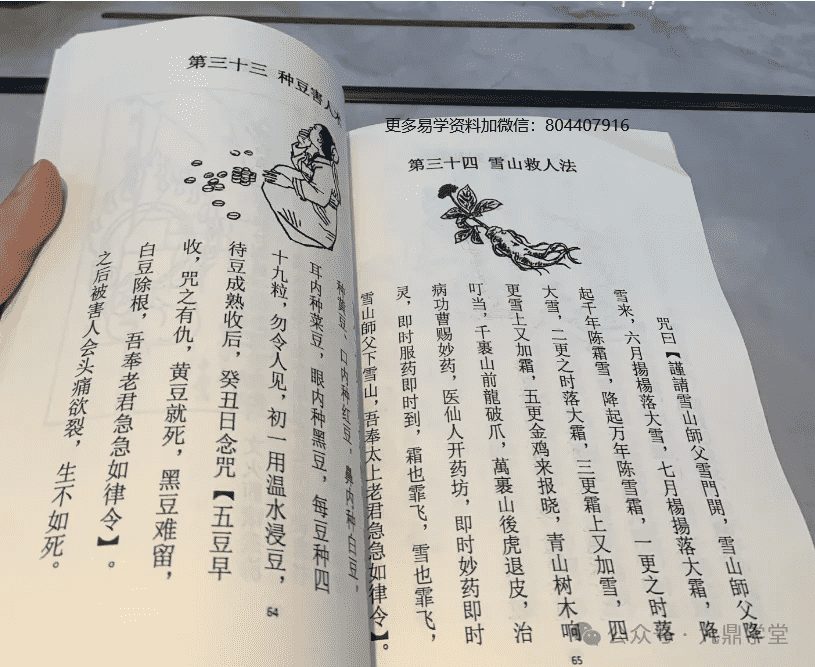 第三十三 种豆害人
种黄豆、口内种红豆，鼻内种白豆，
耳内种菜豆，眼内种黑豆，每豆种四
十九粒，勿令人见，初一用温水浸豆，
待豆成熟收后，癸丑日念咒【五豆早
收，咒之有仇，黄豆就死，黑豆难留，
白豆除根，吾奉老君急急如律令】。
之后被害人会头痛欲裂，生不如死。
64
更多易学资料加微信：804407916
第三十四 雪山救人法
咒曰【謹請雪山師父雪門開，雪山師父降
雪来，六月揚楊落大雪，七月楊揚落大霜，降
起千年陈霜雪，降起万年陈雪霜，一更之时落
大雪，二更之时落大霜，三更霜上又加雪，四
更雪上又加霜，五更金鸡来报晓，青山树木响
叮当，千裹山前龍破爪，萬裹山後虎退皮，治
病功曹赐妙药，医仙人开药坊，即时妙药即时
灵，即时服药即时到，霜也霏飞，雪也霏飞，
雪山師父下雪山，吾奉太上老君急急如律令】。
65
公众号·九鼎学堂